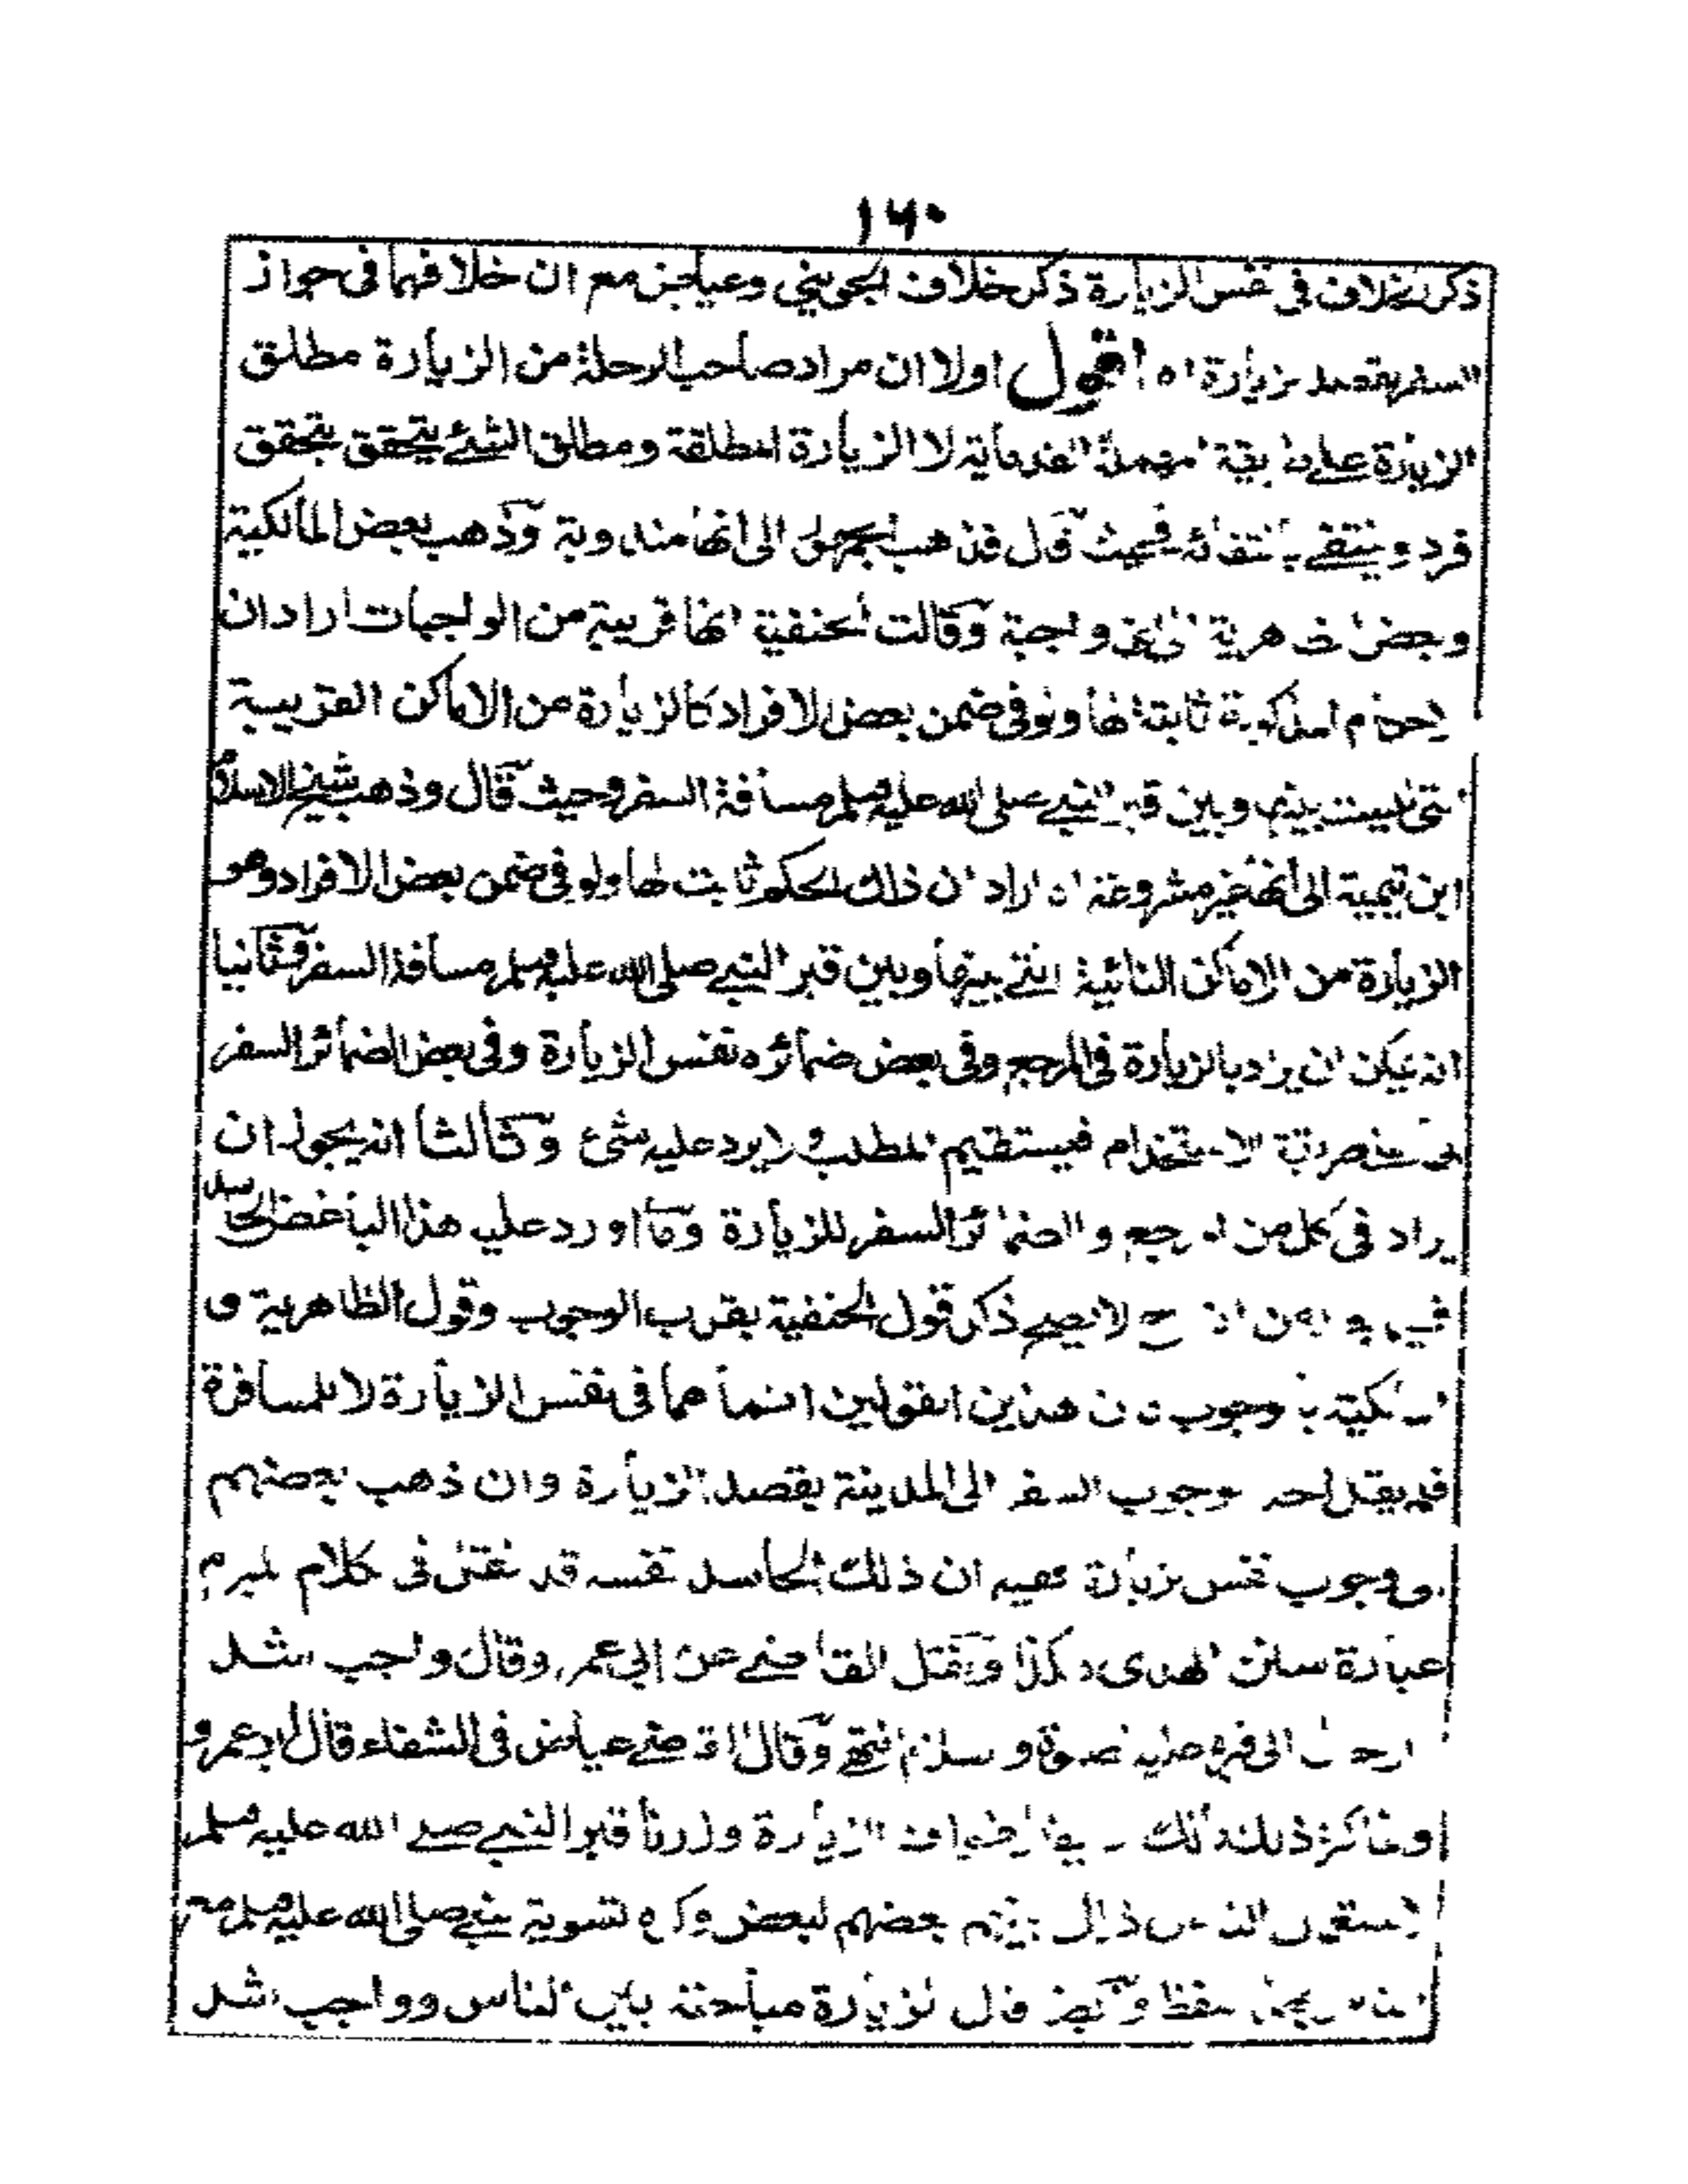 ١٦٠
ذكر الخلاف فى نفس الزيارة ذكر خلاف الجوينى وعياض مع ان خلافهما فى جواز
السفر بقصد زيارة اه اقول اولا ان مراد صاحب الرحلة من الزيارة مطلق
الزيارة على طريقة المهملة القدمائية لا الزيارة المطلقة ومطلق الشئ يتحقق بتحقق
فرد وينتفى بانتفائه فحيث قال فذهب الجمهور الى انها مندوبة وذهب بعض المالكية
وبعض الظاهرية الى انها واجبة وقالت الحنفية انها قريبة من الواجبات اراد ان
الاحكام المذكورة ثابتة لها ولو فى ضمن بعض الافراد كالزيارة من الاماكن القريبة
التى ليست بينها وبين قبر النبى صلى الله عليه وسلم مسافة السفر وحيث قال وذهب شيخ الاسلام
ابن تيمية الى انها غير مشروعة اه اراد ان ذلك الحكم ثابت لها ولو فى ضمن بعض الافراد وهو
الزيارة من الاماكن النائية التى بينها وبين قبر النبى صلى الله عليه وسلم مسافة السفر وثانيا
انه يمكن ان يراد بالزيارة فى المرجع وفى بعض ضمائره نفس الزيارة وفى بعض الضمائر السفر
على طريقة الاستخدام فيستقيم المطلب ولا يرد عليه شئ وثالثا انه يجوز ان
يراد فى كل من المرجع والضمائر السفر للزيارة وما اورد عليه هذا الباغض الحاسد
بان ح لا يصح ذكر قول الحنفية بقرب الوجوب وقول الظاهرية و
المالكية بالوجوب فان هذين القولين انما هما فى نفس الزيارة لا للمسافرة
فلم يقل احد بوجوب السفر الى المدينة بقصد الزيارة وان ذهب بعضهم
الى وجوب نفس زيارة ففيه ان ذلك الحاسد نفسه قد نقل فى كلام المبرم
عبارة سنن الهدى هكذا ونقل القاضى عن ابى عمر وقال واجب شد
الرحال الى قبره عليه صلوة وسلام انتهى وقال القاضى عياض فى الشفاء قال ابو عمرو
وانما كره ذلك مالك ان يقال طواف الزيارة وزرنا قبر النبى صلى الله عليه وسلم
لاستعمال الناس ذلك بينهم بعضهم لبعض وكره تسوية النبى صلى الله عليه وسلم مع
الناس بهذا اللفظ وايضا قال الزيارة مباحة بين الناس وواجب شد